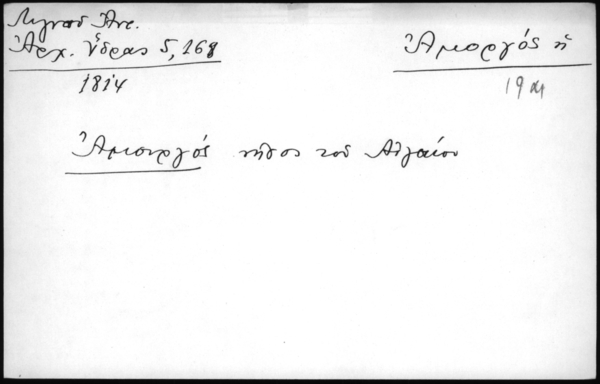 Λιγνοῦ Ἀντ.
Ἀρχ. Ὕδρας 5, 168
1814
Ἀμοργός ἡ
19
Ἀμουργός νῆσος τοῦ Αἰγαίου